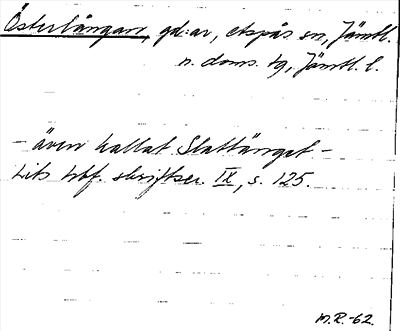 Österlångan, gd:ar, etspås sn, Jämtl.
n. doms. tg, Jämtl. l.
- även kallat Slattänget -
hbf. skriftser. IX, s. 125.
M.R.-62.